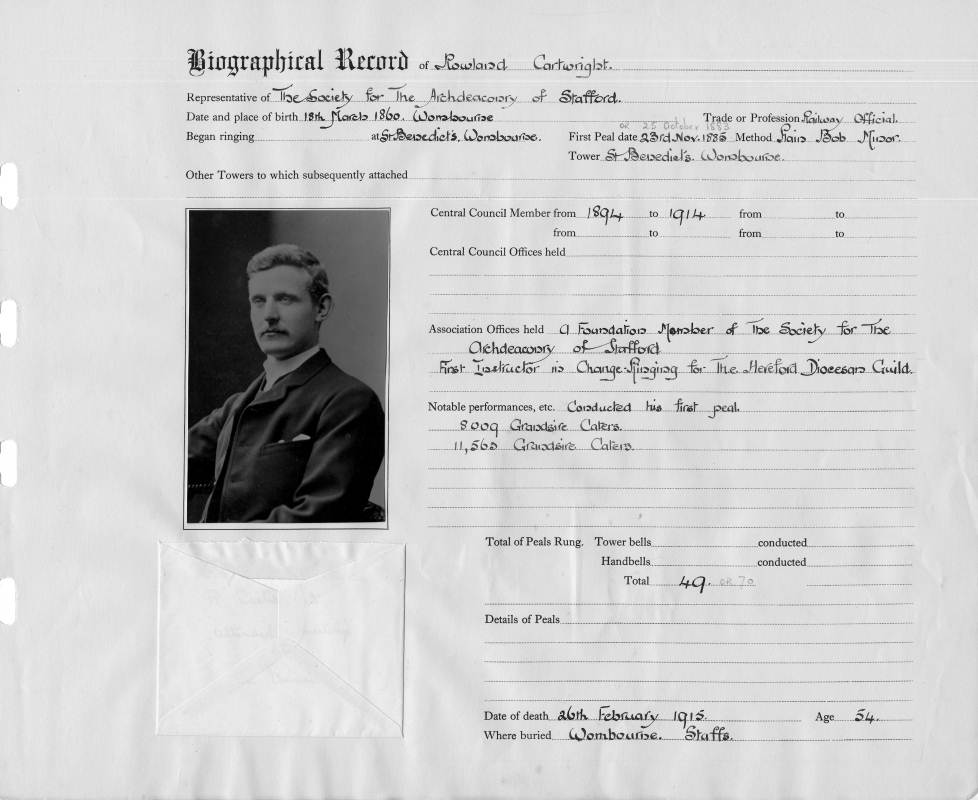 Biographical Record of Rowland Cartwright.
Representative of The Society for The Archdeaconry of Stafford.
Date and place of birth 18th March 1860. Wombourne Trade or Profession Railway Official.
OR 25 October 1883
Began ringing at St Benedict's, Wombourne. First Peal date 23rd Nov. 1885 Method Plain Bob Minor.
Tower St Benedict's. Wombourne.
Other Towers to which subsequently attached
Central Council Member from 1894 to 1914 from to
from to from to
Central Council Offices held
Association Offices held A Foundation Member of The Society for The
Archdeaconry of Stafford
First Instructor in Change-Ringing for The Hereford Diocesan Guild.
Notable performances, etc. Conducted his first peal.
8009 Grandsire Caters.
11,563 Grandsire Caters.
Total of Peals Rung. Tower bells conducted
Handbells conducted
Total 49. OR 70
Details of Peals
Date of death 26th February 1915. Age 54.
Where buried Wombourne. Staffs.